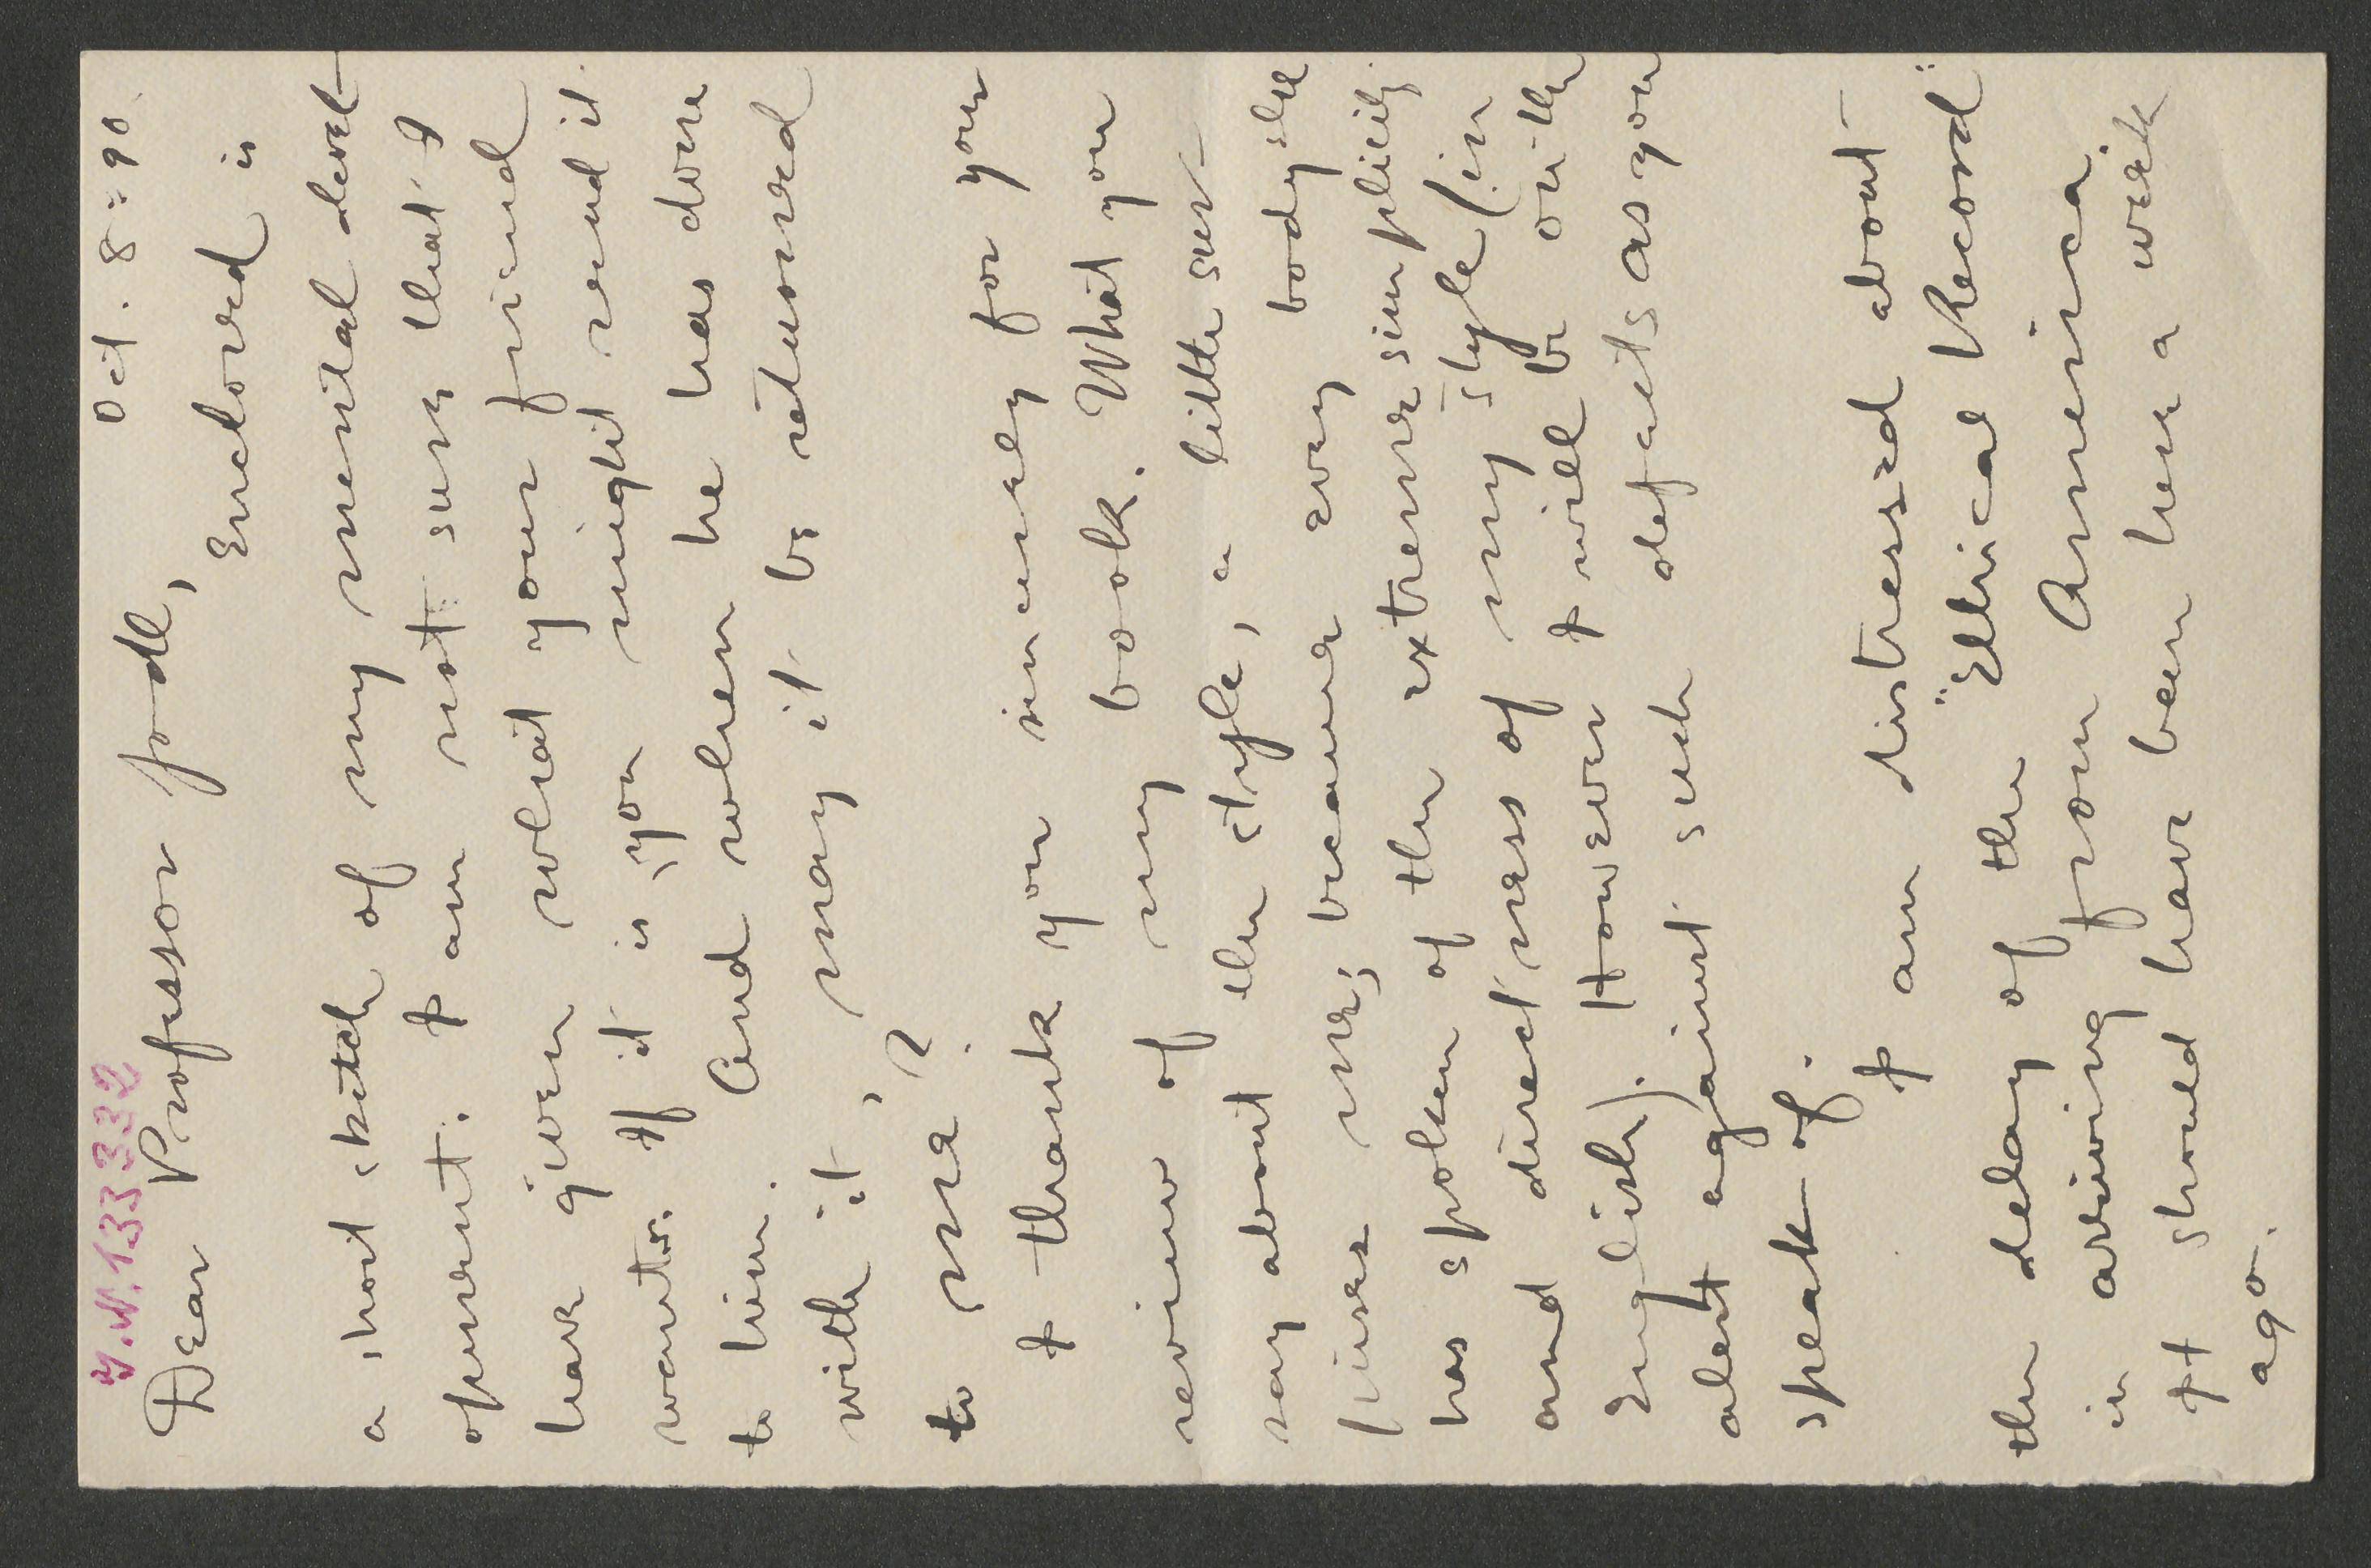 Oct. 8 = 90.
Y.N. 133 332
Dear Professor Jodl,
Enclosed is
a short sketch of my mental devel-
opment. I am not sure that I
have given what your friend
wants. If it is, you might send it
to him. And when he has done
with it, may it be returned
to me?
I thank you sincerely for your
review of my book. What you
say about the style, a little sur-
prises me, because every body else
has spoken of the extreme simplicity
and directness of my style (in
English). However I will be on the
alert against such defects as you
speak of.
I am distressed about
the delay of the "Ethical Record"
in arriving from America.
It should have been here a week
ago.